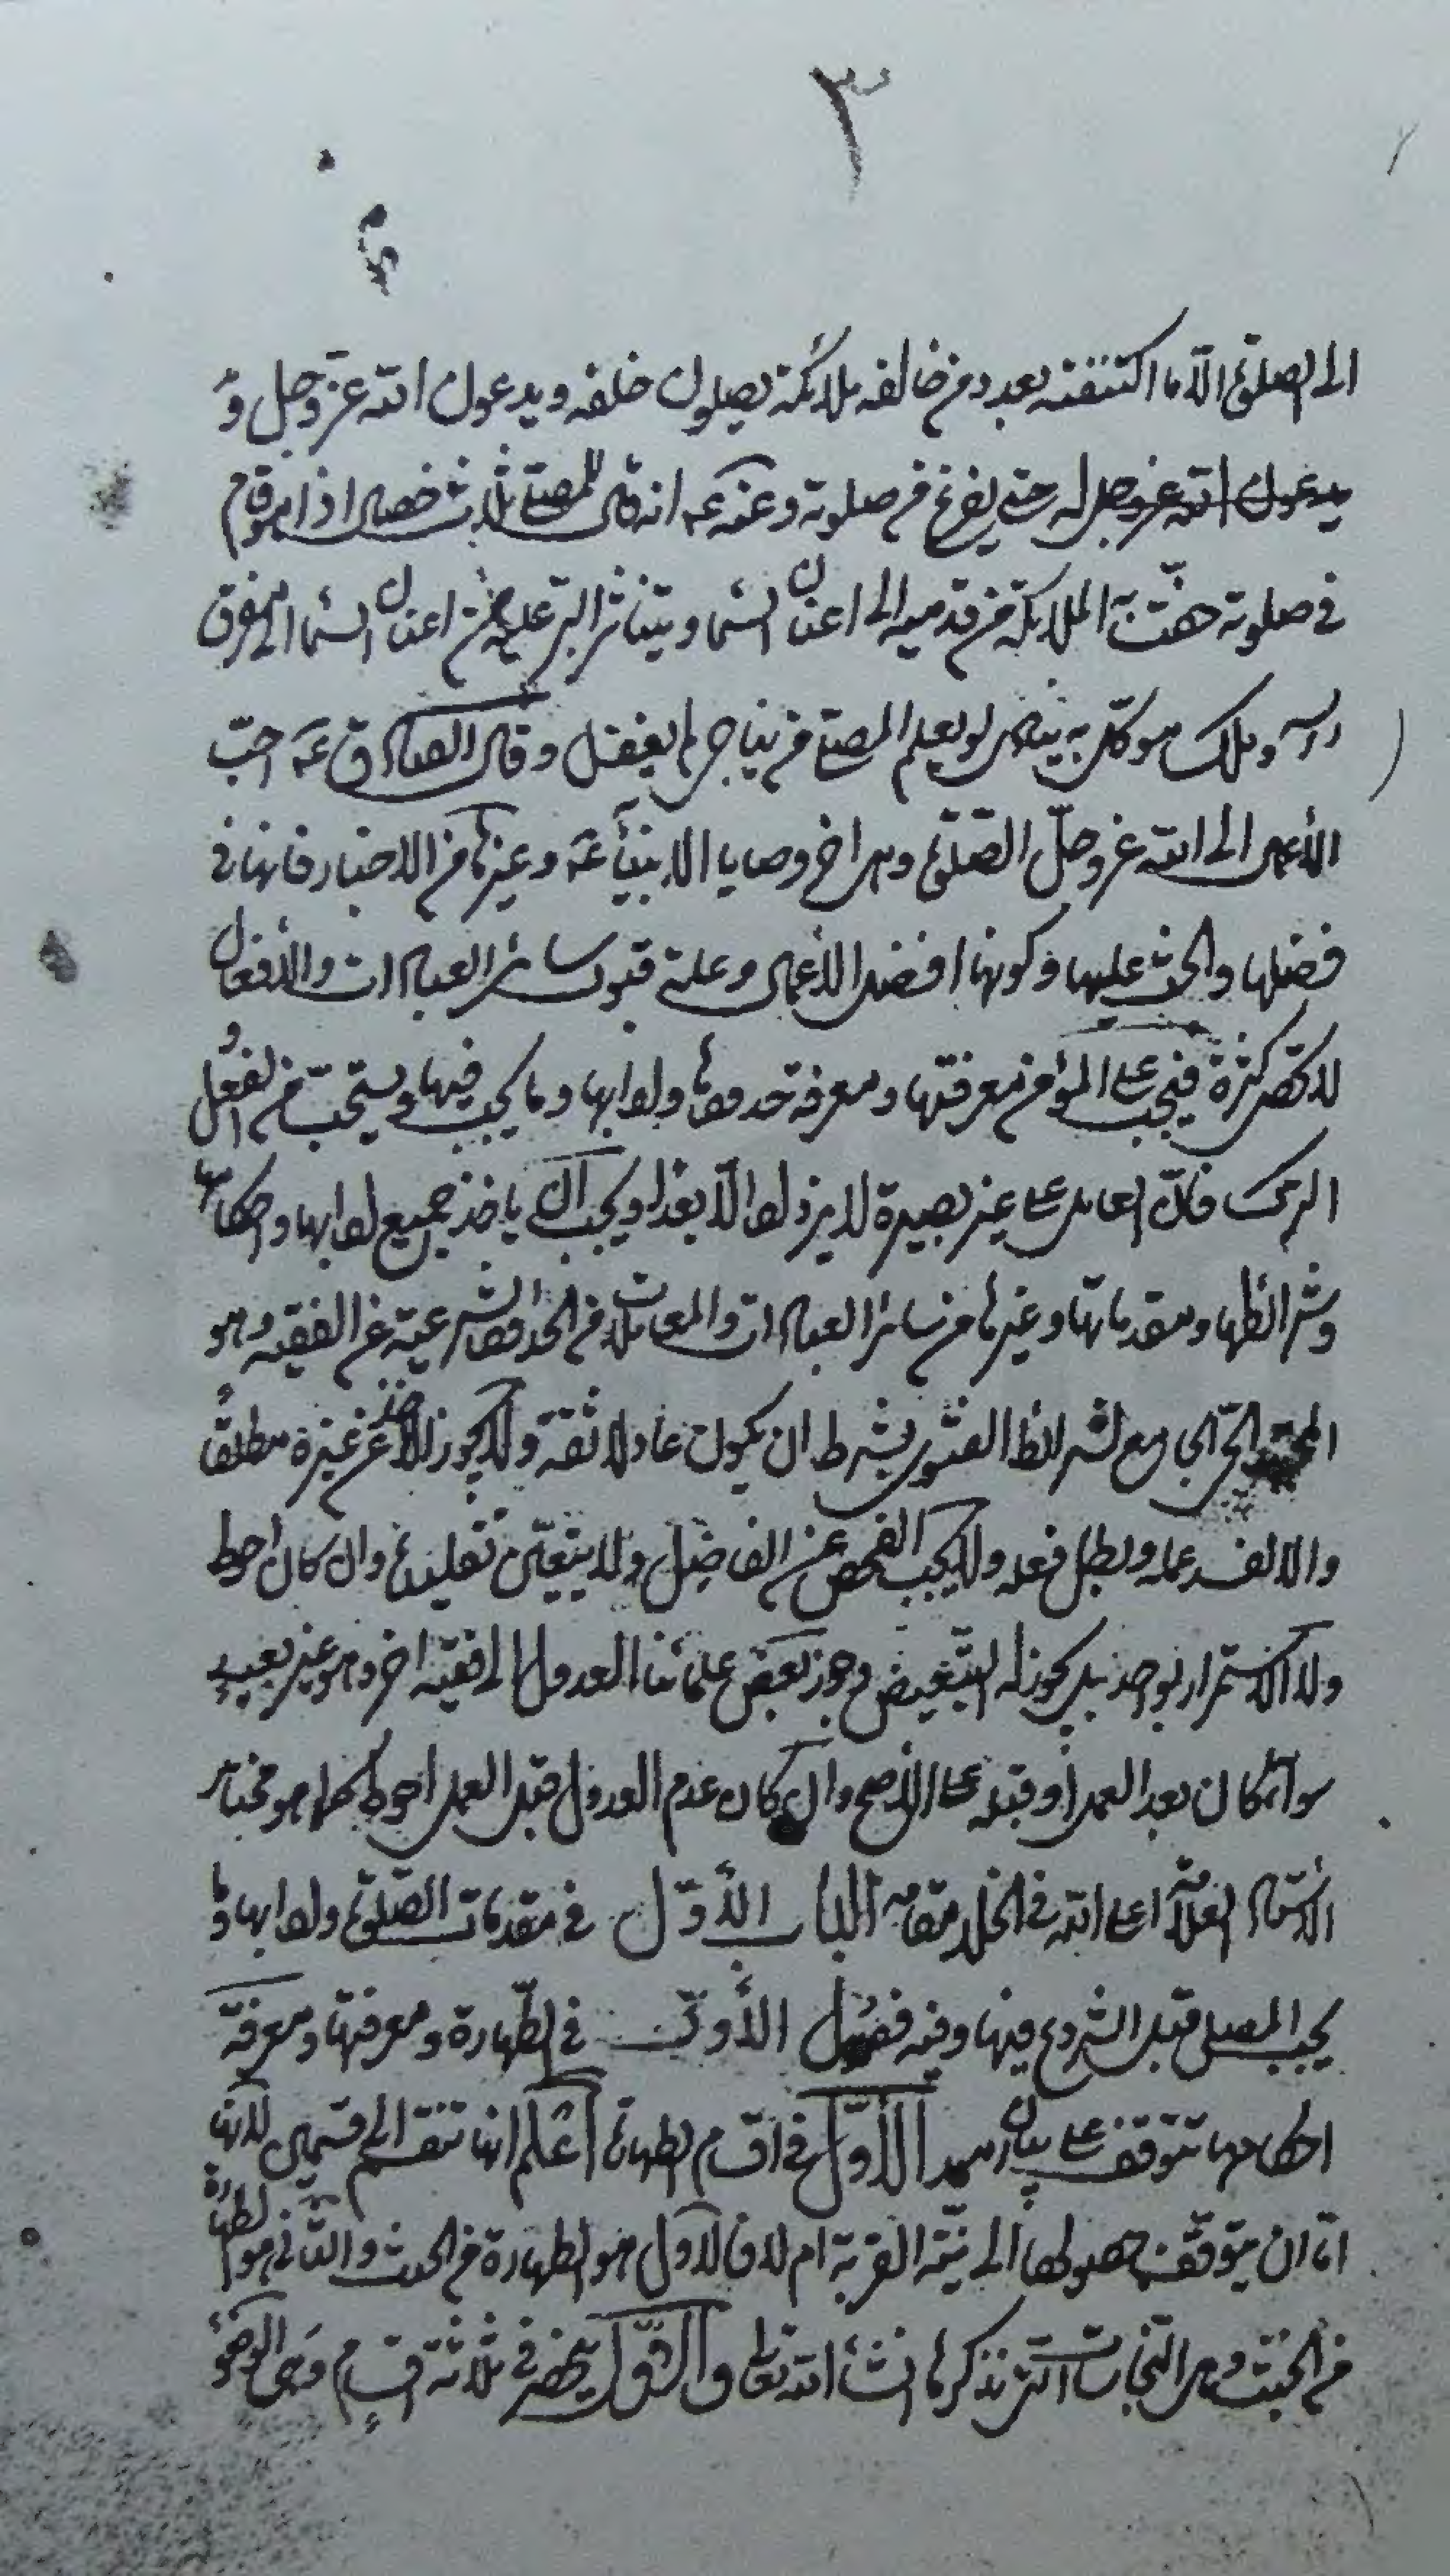 ٣
الى الصلوة الا اكتنفته بعدد من خالفه ملائكة يصلون خلفه ويدعون الله عز وجل و
يدعون الله عز وجل له حتى يفرغ من صلوته وعنه عم انه قال للمصلي ثلاث خصال اذا هو قام
في صلوته حفت به الملائكة من قدميه الى اعنان السماء ويتناثر البر عليه من اعنان السماء الى مفرق
راسه وملك موكل به ينادي لو يعلم المصلي من يناجي ما انفتل وقال الصادق عم احب
الأعمال الى الله عز وجل الصلوة وهي اخر وصايا الانبياء عم وغيرها من الاخبار فانها في
فضلها والحث عليها وكونها افضل الأعمال وعلة قبول سائر العبادات والأفعال
لا تحصى كثرة فيجب على المؤمن معرفتها ومعرفة حدودها وابوابها وما يجب فيها ويستحب من الفعل و
الترك فان العامل على غير بصيرة لا يزداد الا بعدا ويجب ان ياخذ جميع ابوابها واحكامها
وشرائطها ومقدماتها وغيرها من سائر العبادات والمعاملات من الحدود الشرعية عن الفقيه وهو
المجتهد الحي الجامع لشرائط الفتوى بشرط ان يكون عادلا ثقة ولا يجوز الاخذ عن غيره مطلقا
والا لفسد عمله وبطل فعله ولا يجب الفحص عن الفاضل ولا يتعين تقليده وان كان احوط
ولا الاستمرار بواحد بل يجوز له التبعيض وجوز بعض علمائنا العدول الى فقيه اخر وهو غير بعيد
سواء كان بعد العمل او قبله على الأصح وان كان عدم العدول قبل العمل احوط كما هو مختار
الاستاد العلامة اعلى الله في الخلد مقامه الباب الأول في مقدمات الصلوة وابوابها وما
يجب المصلي قبل الشروع فيها وفيه فصول الأول في الطهارة ومعرفتها ومعرفة
احكامها تتوقف على بيان امور الأول في اقسام الطهارة اعلم انها تنقسم الى قسمين لانها
اما ان يتوقف حصولها الى نية القربة ام لا فالاول هو الطهارة من الحدث والثاني هو الطهارة
من الخبث وهي النجاسات التي نذكرها انشاء الله تعالى والأول ينحصر في ثلاثة اقسام وهي الوضوء